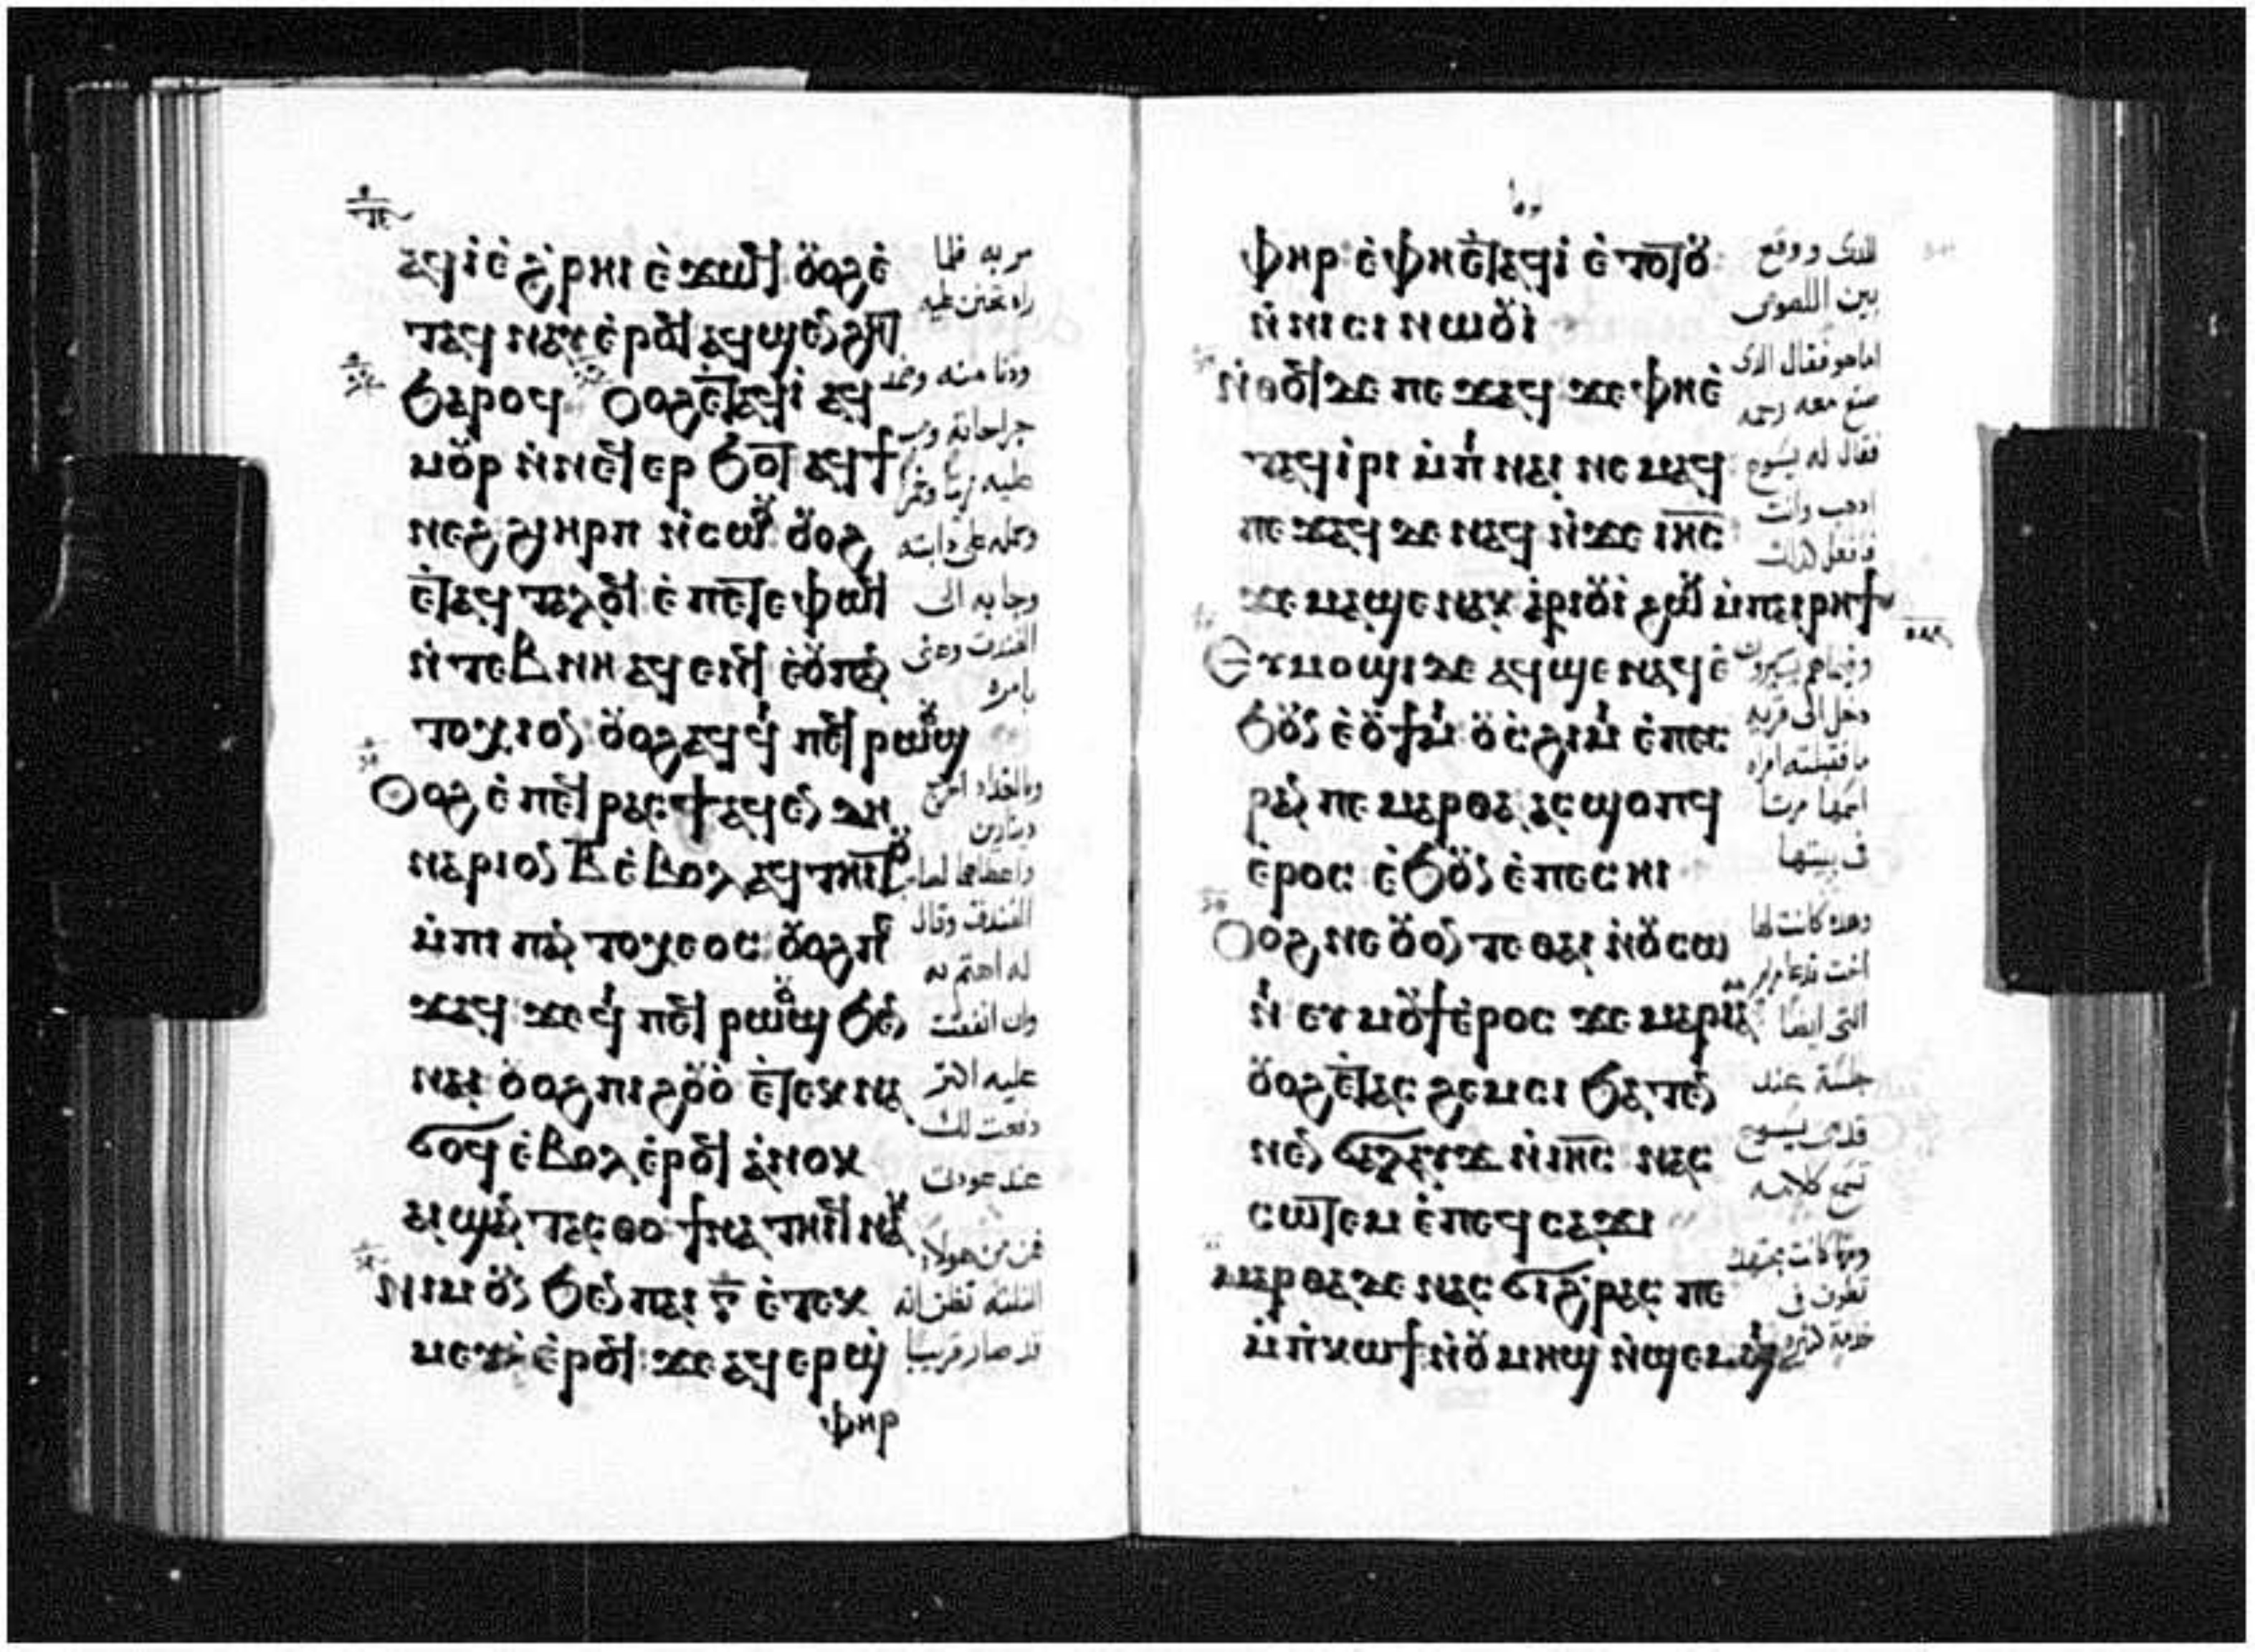 ⲁϥⲓ̀ ⲉ̀ϩ̀ⲣⲏⲓ ⲉ̀ϫⲱϥ ⲟⲩⲟϩ ⲉ̀
ⲧⲁϥⲛⲁⲩ ⲉ̀ⲣⲟϥ ⲁϥϣⲉⲛϩⲏⲧ
ϧⲁⲣⲟϥ Ⲟⲩⲟϩ ⲉ̀ⲧⲁϥⲓ̀ ⲁϥ
ⲙⲟⲩⲣ ⲛ̀ⲛⲉϥⲉⲣϧⲟⲧ ⲁϥϯ
ⲛⲉϩ ϩⲓ ⲏⲣⲡ ⲛ̀ⲥⲱⲟⲩ ⲟⲩⲟϩ
ⲉ̀ⲧⲁϥⲧⲁⲗⲟϥ ⲉ̀ⲡⲉⲧⲉⲫⲱϥ
ⲛ̀ⲧⲉⲃⲛⲏ ⲁϥⲉⲛϥ ⲉ̀ⲟⲩⲡⲁⲛ
ⲧⲟⲭⲓⲟⲛ ⲟⲩⲟϩ ⲁϥϥⲓ ⲡⲉϥⲣⲱⲟⲩϣ
Ⲟⲩⲟϩ ⲉ̀ⲡⲉϥⲣⲁⲥϯ ⲁϥⲉⲛ ⲇⲏ
ⲛⲁⲣⲓⲟⲛ ⲃ̅ ⲉ̀ⲃⲟⲗ ⲁϥⲧⲏⲓⲧⲟⲩ
ⲙ̀ⲡⲓⲡⲁⲛⲧⲟⲭⲉⲟⲥ ⲟⲩⲟϩ ⲡⲉ
ϫⲁϥ ϫⲉ ϥⲓ ⲡⲉϥⲣⲱⲟⲩϣ ϧⲉⲛ
ⲛⲁⲓ ⲟⲩⲟϩ ⲡⲓϩⲟⲩⲟ̀ ⲉ̀ⲧⲉⲕⲛⲁ
ϭⲟϥ ⲉ̀ⲃⲟⲗ ⲉ̀ⲣⲟϥ ⲁ̀ⲛⲟⲕ
ⲁⲓϣⲁⲛⲧⲁⲥⲑⲟ ϯⲛⲁⲧⲏⲓϥ ⲛⲁⲕ
Ⲛⲓⲙ ⲟⲩⲛ ϧⲉⲛ ⲡⲁⲓ ⲅ̅ ⲉ̀ⲧⲉⲕ
ⲙⲉⲩⲓ̀ ⲉ̀ⲣⲟϥ ϫⲉ ⲁϥⲉⲣϣ
ⲫⲏⲣ
مر به فلما
راه تحنن عليه
ودنا منه وضمد
جراحاته وصب
عليه زيتا وخمرا
وحمله على دابته
وجا به الى
الفندق وعنى
بامره
وبالغداه اخرج
دينارين
واعطاهما لصاحب
الفندق وقال
له اهتم به
وان انفقت
عليه اكثر
دفعت لك
عند عودتى
فمن من هولا
الثلثه تظن انه
قد صار قريبا
ⲫⲏⲣ ⲉ̀ⲫⲏⲉ̀ⲧⲁϥⲓ̀ ⲉ̀ⲧⲟⲧⲟⲩ
ⲛ̀ⲛⲓⲥⲓⲛⲱⲟⲩⲓ̀
Ⲛ̀ⲑⲟϥ ⲇⲉ ⲡⲉϫⲁϥ ϫⲉ ⲫⲏⲉ̀
ⲧⲁϥⲓ̀ⲣⲓ ⲙ̀ⲡⲓⲛⲁⲓ ⲛⲉⲙⲁϥ
ⲡⲉϫⲁϥ ⲇⲉ ⲛⲁϥ ⲛ̀ϫⲉ ⲓⲏ̅ⲥ̅
ϫⲉ ⲙⲁϣⲉⲛⲁⲕ ⲁ̀ⲣⲓⲟⲩⲓ̀ ϩⲱⲕ ⲙ̀ⲡⲁⲓⲣⲏϯ
Ⲉⲩⲙⲟϣⲓ ⲇⲉ ⲁϥϣⲉⲛⲁϥ ⲉ̀
ϧⲟⲩⲛ ⲉ̀ⲟⲩϯⲙⲓ ⲟⲩⲥ̀ϩⲓⲙⲓ ⲉ̀ⲡⲉⲥ
ⲣⲁⲛ ⲡⲉ ⲙⲁⲣⲑⲁ ⲁⲥϣⲟⲡϥ
ⲉ̀ⲣⲟⲥ ⲉ̀ϧⲟⲩⲛ ⲉ̀ⲡⲉⲥⲏⲓ
Ⲟⲩⲟϩ ⲛⲉ ⲟⲩⲟⲛ ⲧⲉ ⲑⲁⲓ ⲛ̀ⲟⲩⲥⲱ
ⲛⲓ ⲉⲩⲙⲟⲩϯ ⲉ̀ⲣⲟⲥ ϫⲉ ⲙⲁⲣⲓⲁ
ⲟⲩⲟϩ ⲉ̀ⲧⲁⲥϩⲉⲙⲥⲓ ϧⲁⲧⲉⲛ
ⲛⲉⲛϭⲁⲗⲁⲩϫ ⲛ̀ⲓⲏ̅ⲥ̅ ⲛⲁⲥ
ⲥⲱⲧⲉⲙ ⲉ̀ⲡⲉϥⲥⲁϫⲓ
Ⲙⲁⲣⲑⲁ ⲇⲉ ⲛⲁⲥϭⲓϩ̀ⲣⲁⲥ ⲡⲉ
ⲙ̀ⲡⲕⲱϯ ⲛ̀ⲟⲩⲙⲏϣ ⲛ̀ϣⲉⲙϣⲓ
للذى ووقع
بين اللصوص
اما هو فقال الذى
صنع معه رحمه
فقال له يسوع
اذهب وانت
فافعل كذلك
وفيما هم يسيرون
دخل الى قريه
ما فقبلته امراه
اسمها مرتا
فى بيتها
وهذه كانت لها
اخت تدعا مريم
التى ايضا
جلسة عند
قدمى يسوع
تسمع كلامه
ومرتا كانت مجتهده
تطوف فى
خدمة كثيره